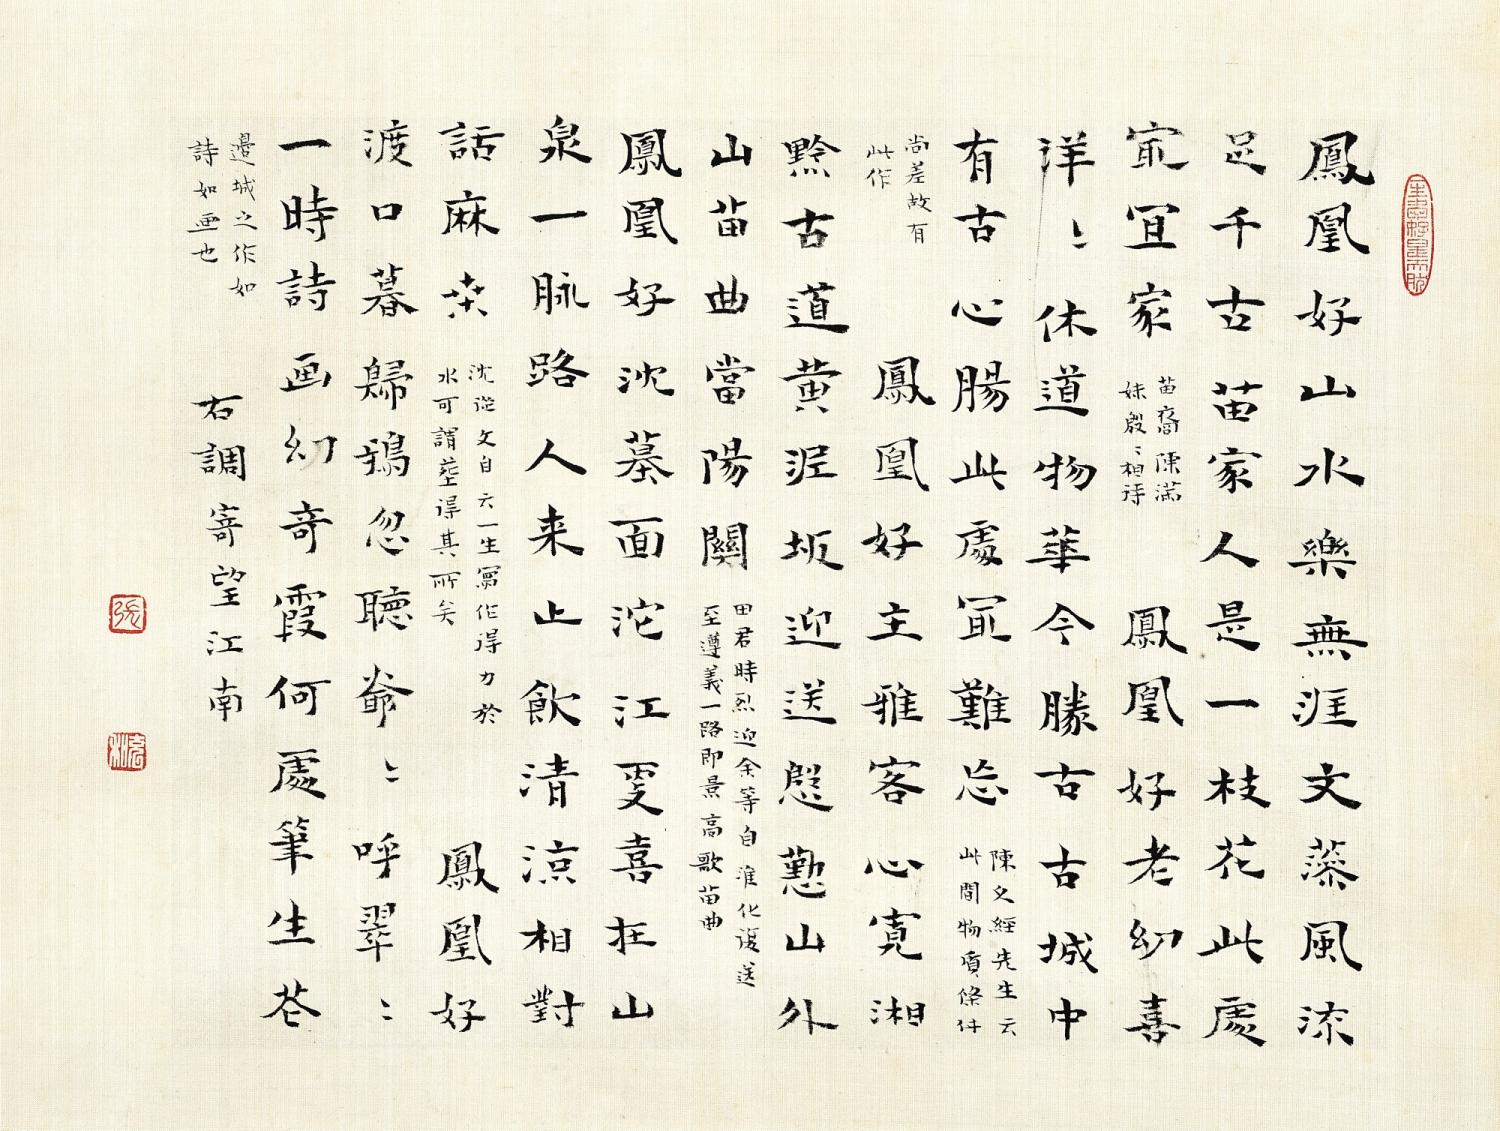 鳳凰好山水樂無涯文藻風流
足千古苗家人是一枝花此處
冣宜家
苗裔陳滿
妹殷〻相待
鳳凰好老幼喜
洋〻休道物華今勝古古城中
有古心腸此處冣難忘
陳文經先生云
此間物質條件
尚差故有
此作
鳳凰好主雅客心寬湘
黔古道黄泥坂迎送慇懃山外
山苗曲當陽關
田君時烈迎余等自淮化復送
至遵義一路即景高歌苗曲
鳳凰好沈墓面沱江更喜在山
泉一脉路人来止飲清涼相對
話麻桒
沈從文自云一生寫作得力於
水可謂葬得其所矣
鳳凰好
渡口暮歸鴉忽聴爺〻呼翠〻
一時詩画幻奇霞何處筆生花
邊城之作如
詩如画也
右調寄望江南
張